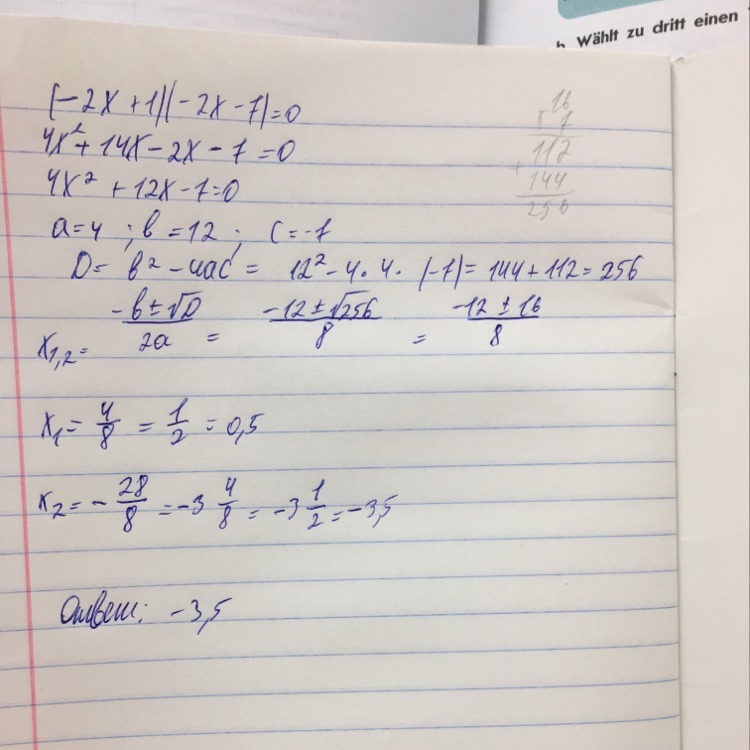 b. Wählt zu dritt einen
(-2x+1)(-2x-7)=0
4x²+14x-2x-7=0
4x²+12x-7=0
a=4 ; b=12; c=-7
D= b²-4ac = 12²-4·4·(-7)=144+112=256
x₁,₂= -b±√D/2a = -12±√256/8 = -12±16/8
x₁= 4/8 = 1/2 = 0,5
x₂= -28/8 = -3 4/8 = -3 1/2 = -3,5
Ответ: -3,5
16
x 7
112
+ 144
256